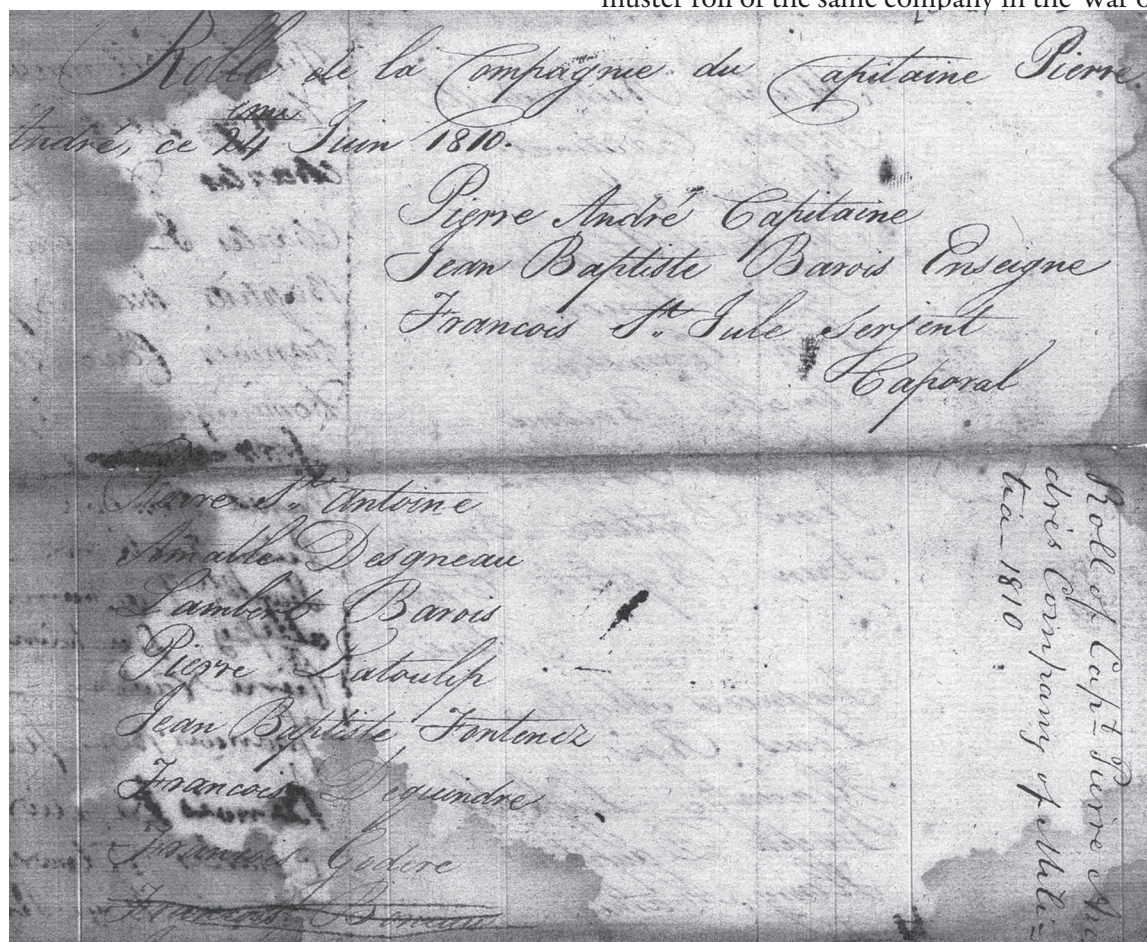 muster roll of the same company in the War o
Rolle de la Compagnie du Capitaine Pierre
André, ce 24 Juin 1810.
Pierre André Capitaine
Jean Baptiste Barois Enseigne
Francois St. Jule Serjent
Caporal
Pierre St. Antoine
Amable Desgneau
Lambert Barois
Pierre Latoulip
Jean Baptiste Fontenez
Francois Dequindre
Francois Cidere
Francois
Roll of Capt. Pierre An
drés Company of Mili=
tia - 1810